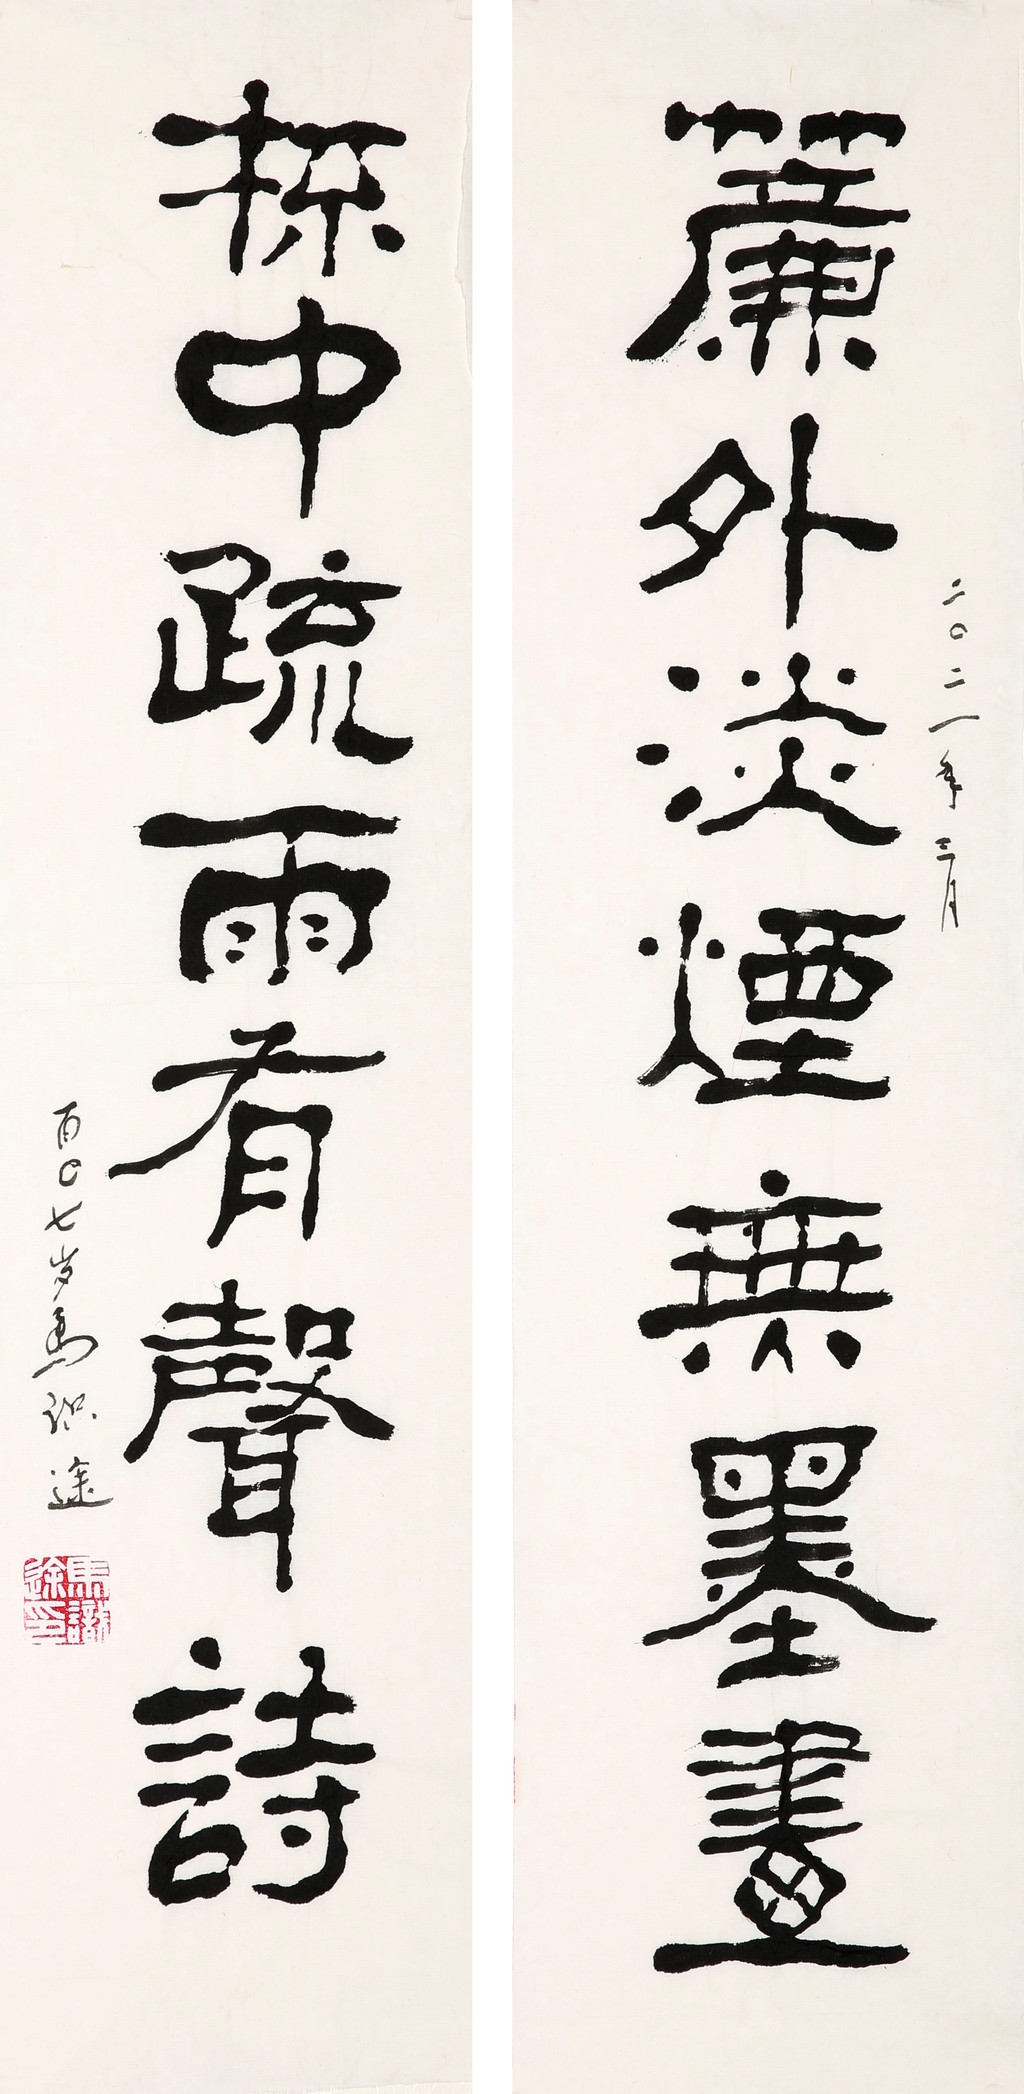 二〇二一年三月
簾外淡煙無墨畫
林中疏雨有聲詩
百〇七岁馬识途
馬識途印